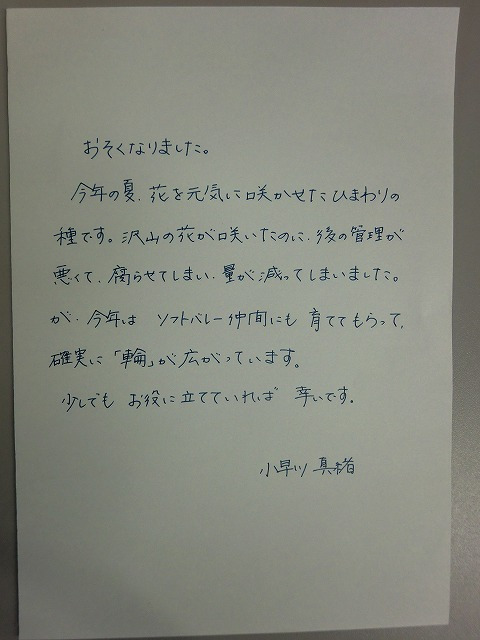 おそくなりました。
今年の夏、花を元気に咲かせたひまわりの
種です。沢山の花が咲いたのに、後の管理が
悪くて、腐らせてしまい、量が減ってしまいました。
が、今年は ソフトバレー仲間にも 育ててもらって、
確実に「輪」が広がっています。
少しでも お役に立てていれば 幸いです。
小早川 真緒